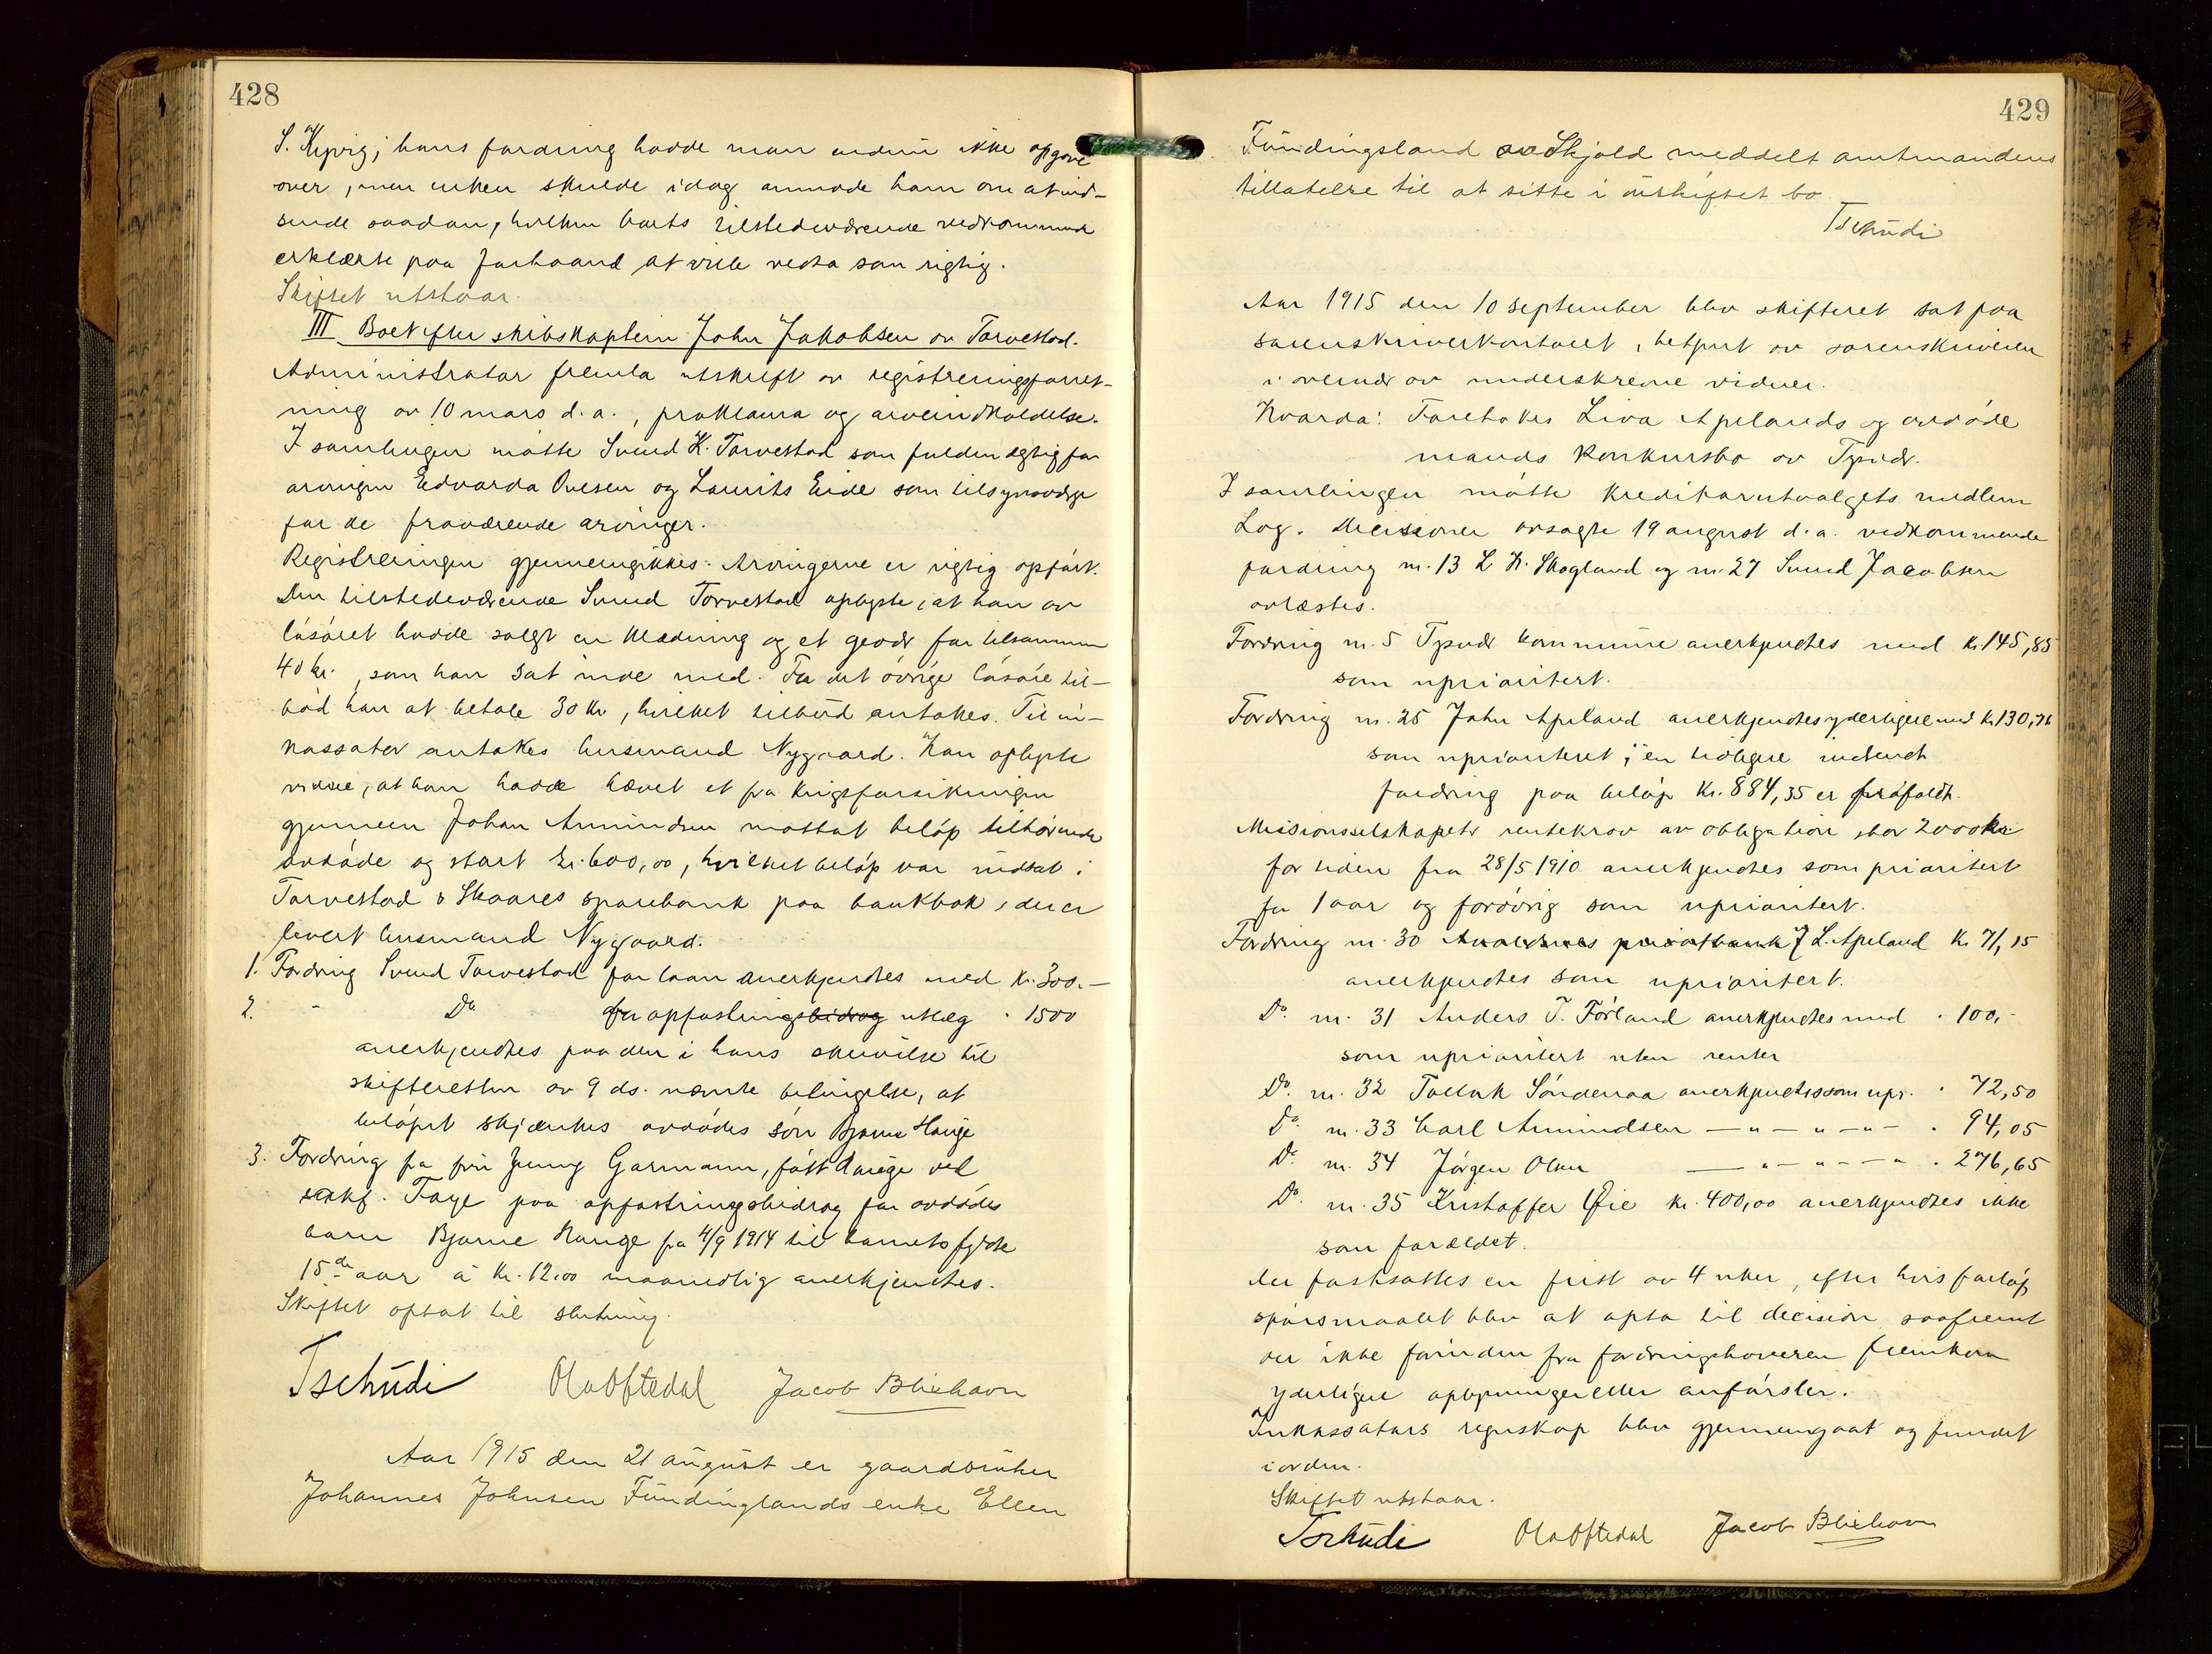 428
S. Kyvig; hans fordring hadde man endnu ikke opgave
over, men enken skulde idag anmode ham om at ind-
sende saadan, hvilken boets tilstedeværende vedkommende
erklærte paa forhaand at ville vedta som rigtig.
Skiftet utstaar.
III Boet efter skibskaptein John Jakobsen av Torvestad.
Administrator fremla utskrift av registreringsforret-
ning av 10 mars d.a., proklama og arveindkaldelse.
I samlingen møtte Svend K. Torvestad som fuldmægtig for
arvingen Edvarda Ovesen og Laurits Eide som tilsynsværge
for de fraværende arvinger.
Registreringen gjennemgikkes. Arvingerne er rigtig opført.
Den tilstedeværende Svend Torvestad oplyste, at han av
løsøret hadde solgt en klædning og et gevær for tilsammen
40 kr., som han sat inde med. For det øvrige løsøre til-
bød han at betale 30 kr, hvilket tilbud antokes. Til in-
kassator antokes lensmand Nygaard. Han oplyste
videre, at han hadde hævet et fra krigsforsikringen
gjennem Johan Amundsen mottat beløp tilhørende
avdøde og stort kr. 600,00, hvilket beløp var indsat i
Torvestad & Skaares sparebank paa bankbok, der er
levert lensmand Nygaard.
1. Fordring Svend Torvestad for laan anerkjendtes med kr. 300.-
2. - Do. for opfostringsbidrag utlæg " 1500
anerkjendtes paa den i hans skrivelse til
skifteretten av 9 ds. nævnte betingelse, at
beløpet skjænkes avdødes søn Bjarne Hauge
3. Fordring fra fru Jenny Garmann, født Hauge ved
sakf. Faye paa opfostringsbidrag for avdødes
barn Bjarne Hauge fra 4/9 1914 til barnets fyldte
15de aar à kr. 12.00 maanedlig anerkjendtes.
Skiftet optat til slutning.
Tschudi Ola Oftedal Jacob Blixhavn
Aar 1915 den 21 august er gaardbruker
Johannes Johnsen Fundinglands enke Ellen
429
Fundingsland av Skjold meddelt amtmandens
tillatelse til at sitte i uskiftet bo
Tschudi
Aar 1915 den 10 september blev skifteret sat paa
sorenskriverkontoret, betjent av sorenskriveren
i overvær av underskrevne vidner.
Hvorda: Foretokes Liva Apelands og avdøde
mands konkursbo av Tysvær.
I samlingen møtte kreditorutvalgets medlem
Log. Decisioner avsagte 19 august d.a. vedkommende
fordring nr. 13 L K. Skogland og nr. 27 Svend Jacobsen
avlæstes.
Fordring nr. 5 Tysvær kommune anerkjendtes med kr. 145,85
som uprioritert.
Fordring nr. 25 John Apeland anerkjendtes yderligere med kr. 130,76
som uprioriteret; en tidligere indsendt
fordring paa beløp kr. 884,35 er frafaldt.
Missionsselskapets rentekrav av obligation stor 2000 kr
for tiden fra 28/5 1910 anerkjendtes som prioritert
for 1 aar og forøvrig som uprioritert.
Fordring nr. 30 Avaldsnes privatbank J L. Apeland kr. 71,15
anerkjendtes som uprioritert.
Do. nr. 31 Anders T. Førland anerkjendtes med " 100,-
som uprioritert uten renter
Do. nr. 32 Tollak Søndenaa anerkjendtes som upr. " 72,50
Do. nr. 33 Carl Amundsen — " — " — " — " 94,05
Do. nr. 34 Jørgen Olsen — " — " — " " 276,65
Do. nr. 35 Kristoffer Øie kr. 400,00 anerkjendtes ikke
som forældet.
Der fastsattes en frist av 4 uker, efter hvis forløp
spørsmaalet blev at opta til decision saafremt
der ikke forinden fra fordringshaveren fremkom
yderligere oplysninger eller anførsler.
Inkassators regnskap blev gjennemgaat og fundet
i orden.
Skiftet utstaar.
Tschudi Ola Oftedal Jacob Blixhavn